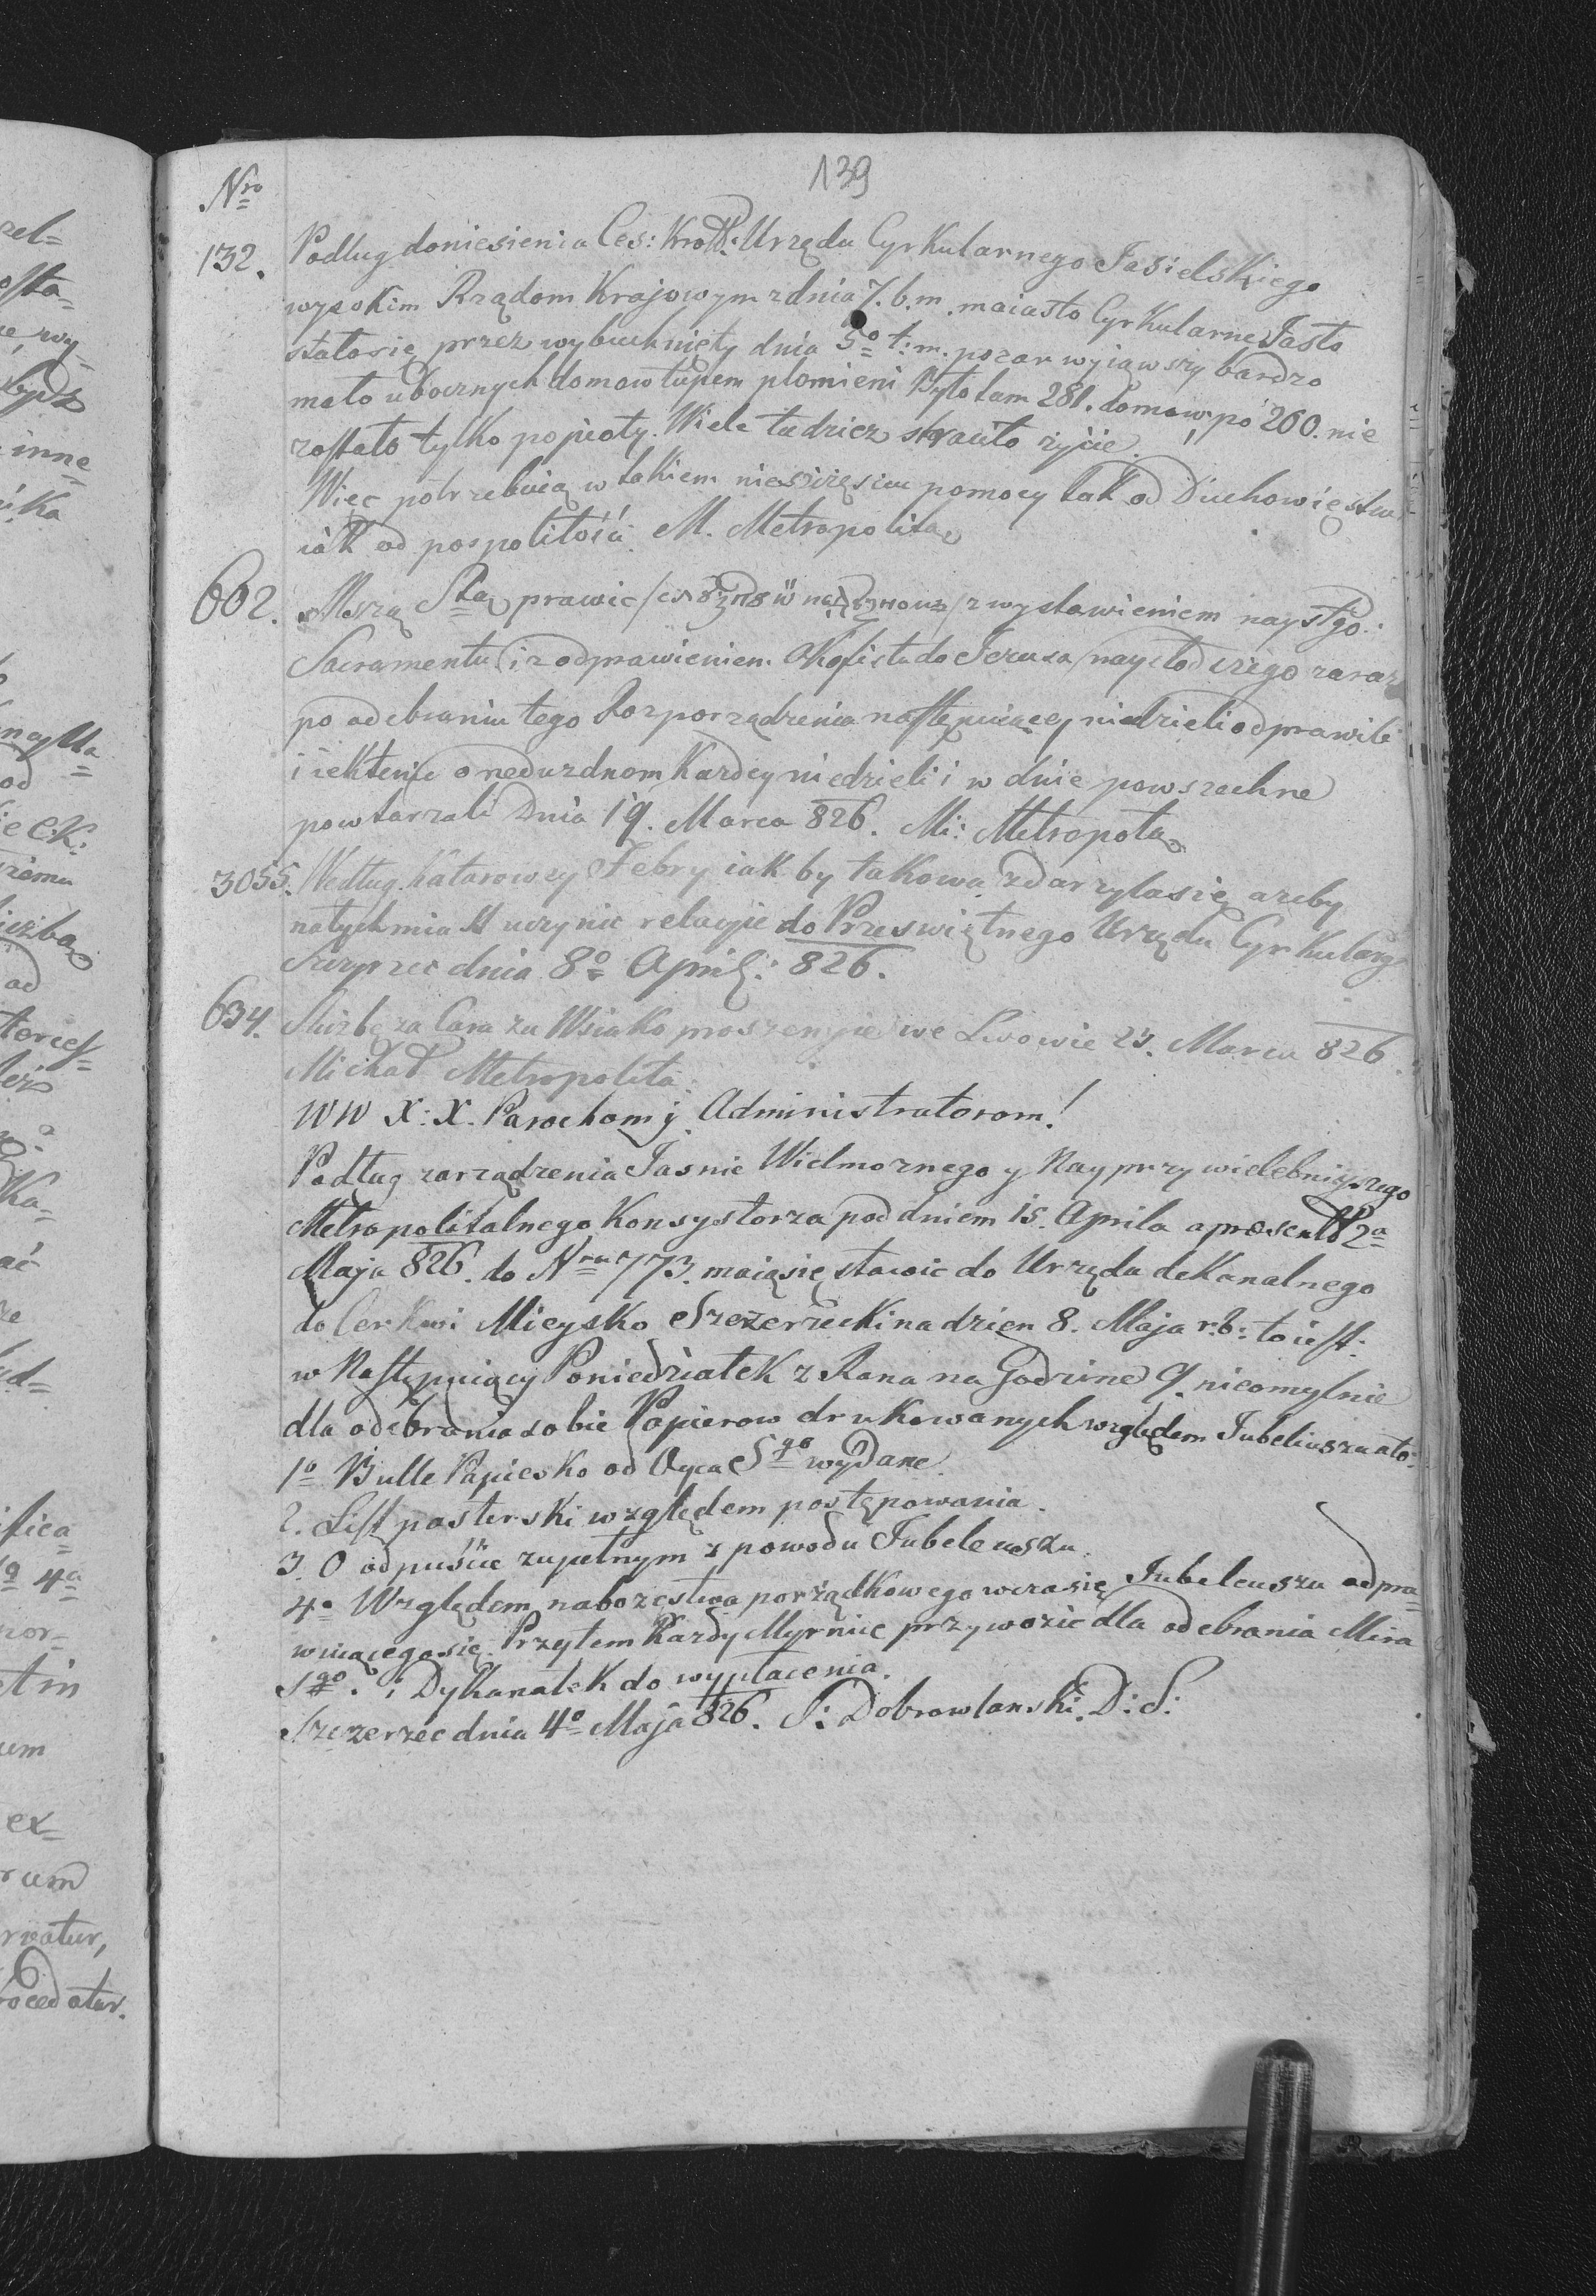 139
Nro
132. Podług doniesienia Ces: Krol: Urzędu Cyrkularnego Jasielskiego
wysokim Rządom Krajowym z dnia 7. b. m. maiasto Cyrkularne Jasło
stałosię przez wybuchnięty dnia 5o t: m. pozar wyiąwszy bardzo
mało ubocznych domow łupem płomieni Było tam 281. domow, po 260. nie
zostało tylko popioły. Wiele tudziez straciło życie.
Więc potrzebuią w takiem nieszczęściu pomocy tak od Duchowięstwa
iak od pospolitości. M. Metropolita
602. Mszą Stą prawic / z wystawieniem nayśgo:
Sacramentu i z odprawieniem Akafista do Jezusa nayslodszego zaraz
po odebraniu tego Rozporządzenia następuiącey niedzieli odprawili
i iektenie o neduzdnom kazdey niedzieli i w dnie powszechne
powtarzali Dnia 19. Marca 826. Mi: Metropola
3055. Według katarowey Febry iak by takowa zdarzylasię azeby
natychmiast uczynic relacyie do Przeświętnego Urzędu Cyrkularg
Szczerzec dnia 8o April: 826.
634. Służbę za Cara za Wsiako proszenyie we Lwowie 23. Marca 826.
Michał Metropolita
WW X: X. Parochom y Administratorom!
Podług zarządzenia Jasnie Wielmoznego y Nayprzywielebnieyszego
Metropolitalnego Konsystorza pod dniem 15. Aprila a præsent 2a
Maja 826. do Nru 773. maiąsię stawic do Urzędu dekanalnego
do Cerkwi Mieysko Szczerzecki na dzien 8. Maja r. b: to iest:
w Następuiący Poniedziałek z Rana na Godzine 9. nieomylnie
dla odebrania sobie Papierow drukowanych względem Jubeliuszu ato:
1o Bulle Papiesko od Oyca Sgo wydane.
2. List pasterski względem postępowania.
3. O odpuście zupełnym z powodu Jubeleuszu.
4o Względem nabozęstwa porządkowego wczasię Jubeleuszu odpra=
wuiącego się. Przytem Kazdy Myrnic przywozic dla odebrania Mira
Sgo. i Dykanatek do wypłacenia.
Szczerzec dnia 4o Maja 826. J: Dobrowlanski. D: S: